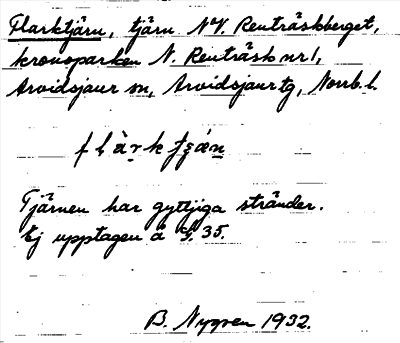 Flarktjärn, tjärn NV. Renträskberget,
kronoparken N. Renträsk nr 1,
Arvidsjaur sn, Arvidsjaur tg, Norrb. l.
Tjärnen har gyttjiga stränder.
Ej upptagen å 35.
B. Nygren 1932.